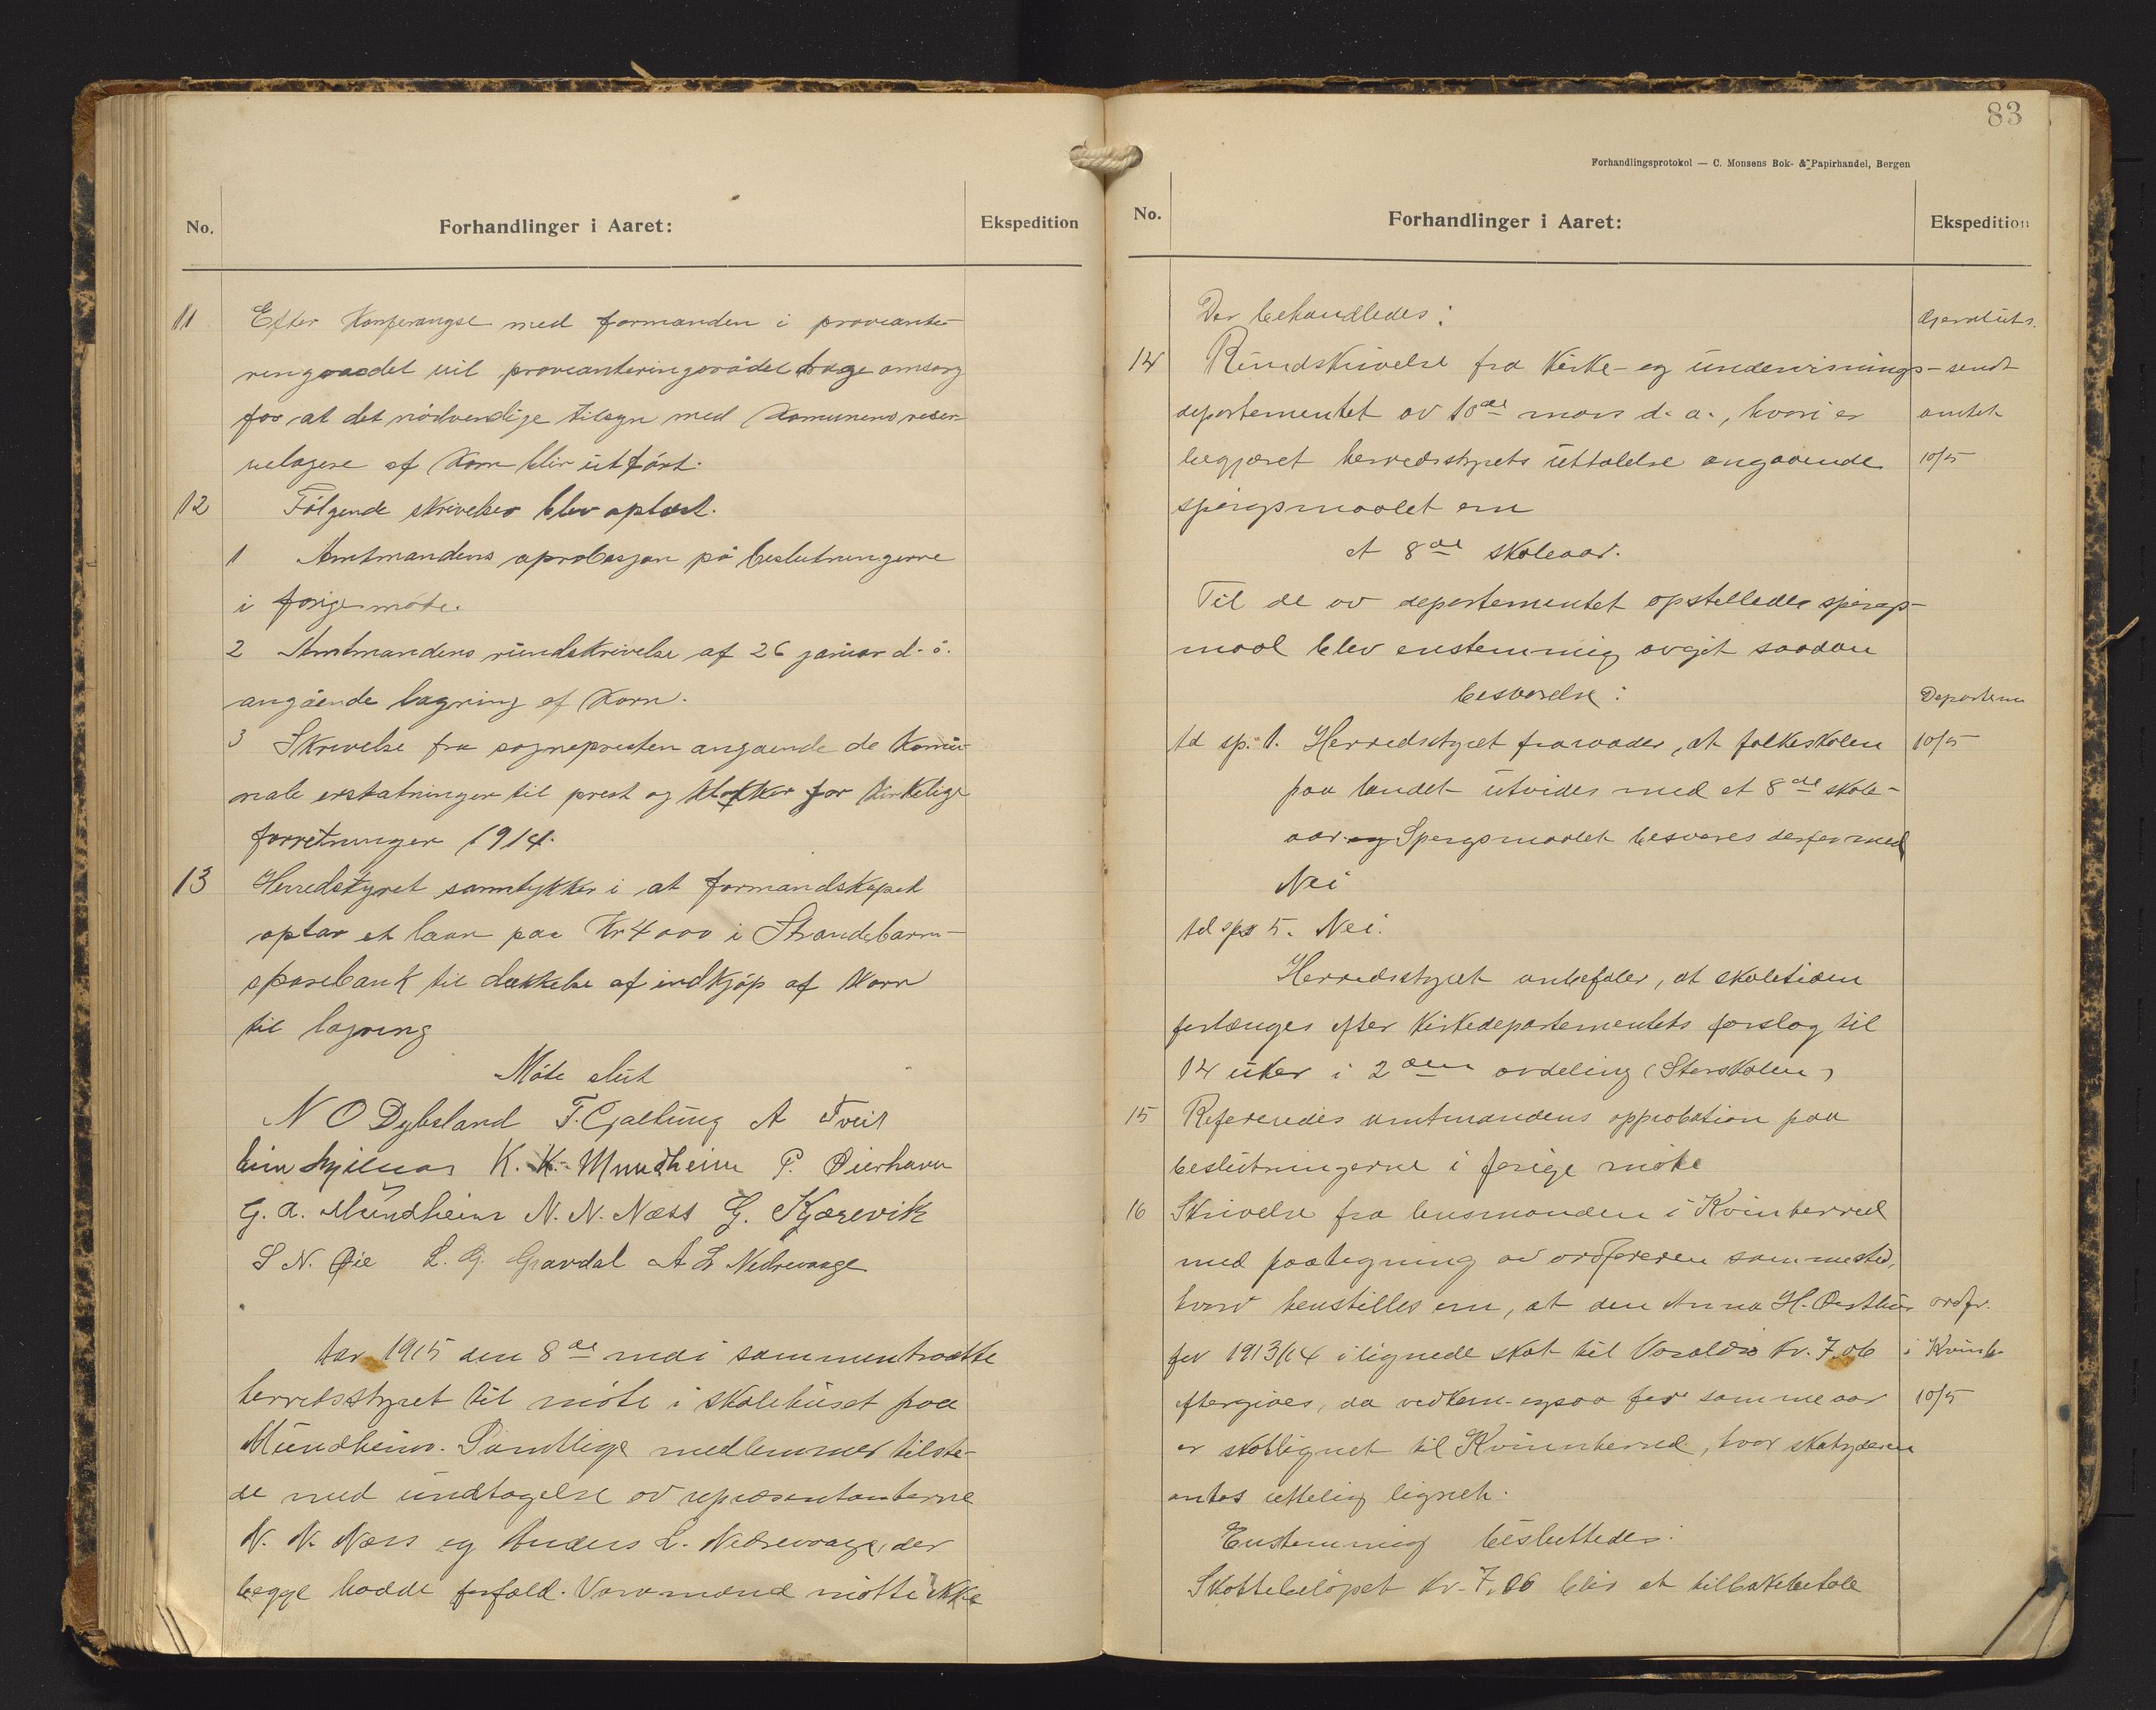 No.
Forhandlinger i Aaret:
Ekspedition
11 Efter Konferangse med formanden i provianter-
ringraadet vil provianteringsrådet drage omsorg
for at det nödvendige tilsyn med Komunens reser-
velagere af Korn blir utfört.
12 Følgende skrivelser blev oplæst.
1 Amtmandens aprobasjon på beslutningerne
i forige möte.
2 Amtmandens rundskrivelse af 26 januar d. å.
angående lagring af Korn.
3 Skrivelse fra sognepresten angaende de Komu-
nale erstatninger til prest og klokker for kirkelige
forretninger 1914.
13 Herredstyret samtykker i at formandskapet
optar et laan paa Kr 4000 i Strandebarm
sparebank til dækkelse af indkjöp af Korn
til lagring
Möte slut
N O Dybsland T. Gjaltung A Tveit
K. K. Mundheim P. Øierhavn
G. A. Mundheim N. N. Næss G. Kjærevik
S N. Øie L. G. Gravdal A L Nedrevaage
Aar 1915 den 8de mai sammentraatte
herredsstyret til möte i skolehuset paa
Mundheim. Samtlige medlemmer tilste-
de med undtagelse av repræsentanterne
N. N. Næss og Anders L. Nedrevaage, der
begge hadde forfald. Varamænd mötte ikke
83
Forhandlingsprotokol — C. Monsens Bok- & Papirhandel, Bergen
No.
Forhandlinger i Aaret:
Ekspedition
Der behandledes:
14 Rundskrivelse fra Kirke- og undervisnings- sendt
departementet av 10de mars d. a., hvori er amtet
begjæret herredsstyrets uttalelse angaaende 10/5
spörgsmaalet om
et 8de skoleaar.
Til de av departementet opstillede spörgs-
maal blev enstemmig avgit saadan
besvarelse: Departem
td sp. 1. Herredsstyret fraraader, at folkeskolen 10/5
paa landet utvides med et 8de skole-
aar. og Spergsmaalet besvares derfor med
Nei
td sps 5. Nei.
Herredsstyret anbefaler, at skoletiden
forlænges efter Kirkedepartementets forslag til
14 uker i 2den avdeling (Storskolen)
15 Refereredes amtmandens approbation paa
beslutningerne i forige möte
16 Skrivelse fra lensmanden i Kvinherred
med paategning av ordføreren sammested,
hvori henstilles om, at den Anna H. ordfr.
for 1913/14 ilignede skat til Varaldsö Kr. 7.06 i Kvinh.
eftergives, da vedkom. ogsaa for samme aar 10/5
er skatlignet til Kvinnherred, hvor skatyderen
antas rettelig lignet.
Enstemmig besluttedes:
Skattebelöpet Kr. 7,06 blir at tilbakebetale